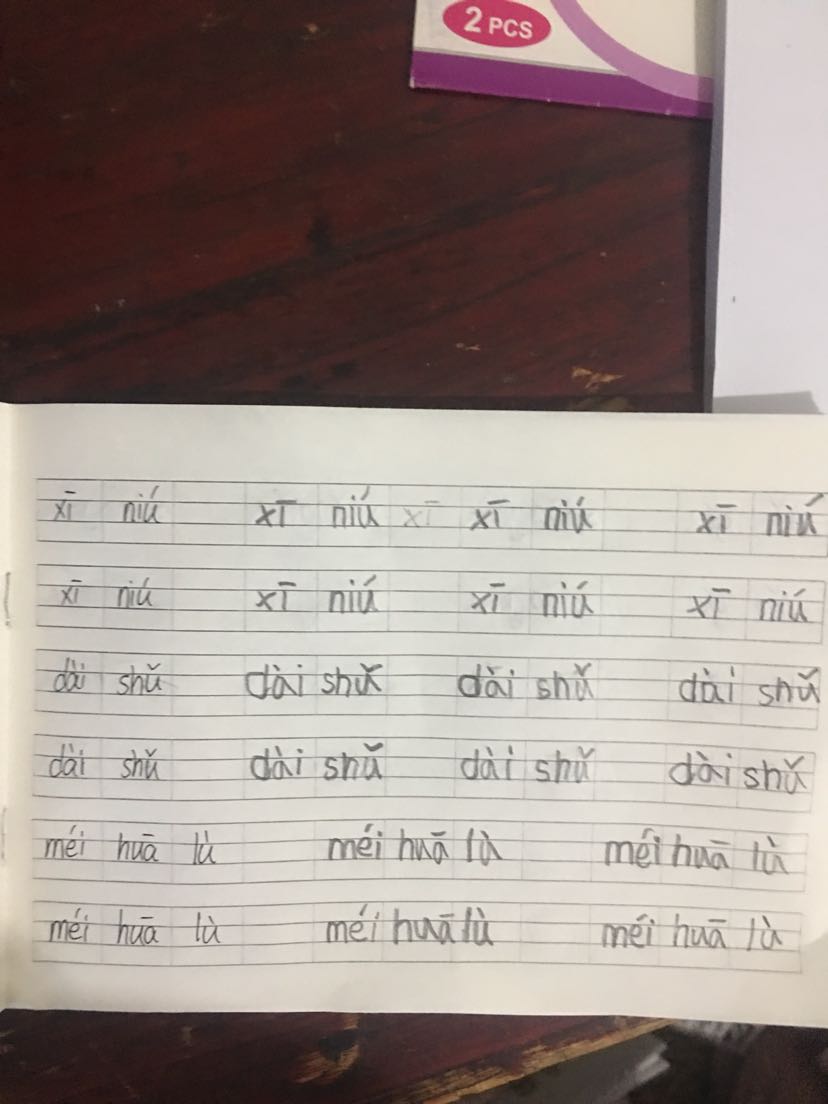 2 PCS
xī niú xī niú xī xī niú xī niú
xī niú xī niú xī niú xī niú
dài shǔ dài shǔ dài shǔ dài shǔ
dài shǔ dài shǔ dài shǔ dài shǔ
méi huā lù méi huā lù méi huā lù
méi huā lù méi huā lù méi huā lù